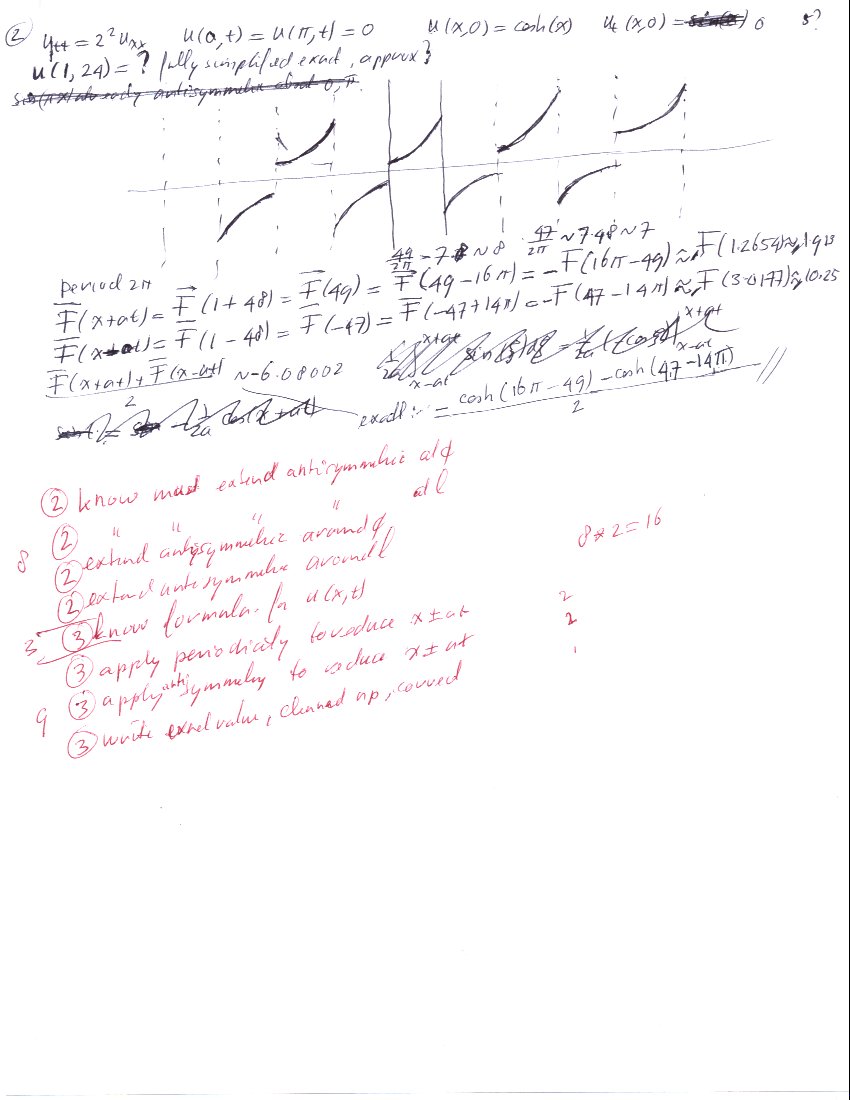 ② y_tt = 2² u_xx   u(0,t) = u(π,t) = 0   u(x,0) = cosh(x)   u_t (x,0) = 0   5?
u(1,24) = ? fully simplified exact, approx }
49/2π ~ 7.8 ~ 8   47/2π ~ 7.48 ~ 7
period 2π
F̄(x+at) = F̄(1+48) = F̄(49) = F̄(49-16π) = -F̄(16π-49) ≈ F̄(1.2654) ≈ 1.913
F̄(x-at) = F̄(1-48) = F̄(-47) = F̄(-47+14π) = -F̄(47-14π) ≈ F̄(3.0177) ≈ 10.25
(F̄(x+at) + F̄(x-at))/2 ~ -6.08002
exact: = (-cosh(16π-49) - cosh(47-14π))/2 //
② know must extend antisymmetric at 0
② " " " " at l
8 ② extend antisymmetric around 0
② extend antisymmetric around l
8*2=16
3 ③ know formula for u(x,t)
③ apply periodicity to reduce x ± at   2
③ apply anti symmetry to reduce x ± at   2
9 ③ write exact value, cleaned up, correct